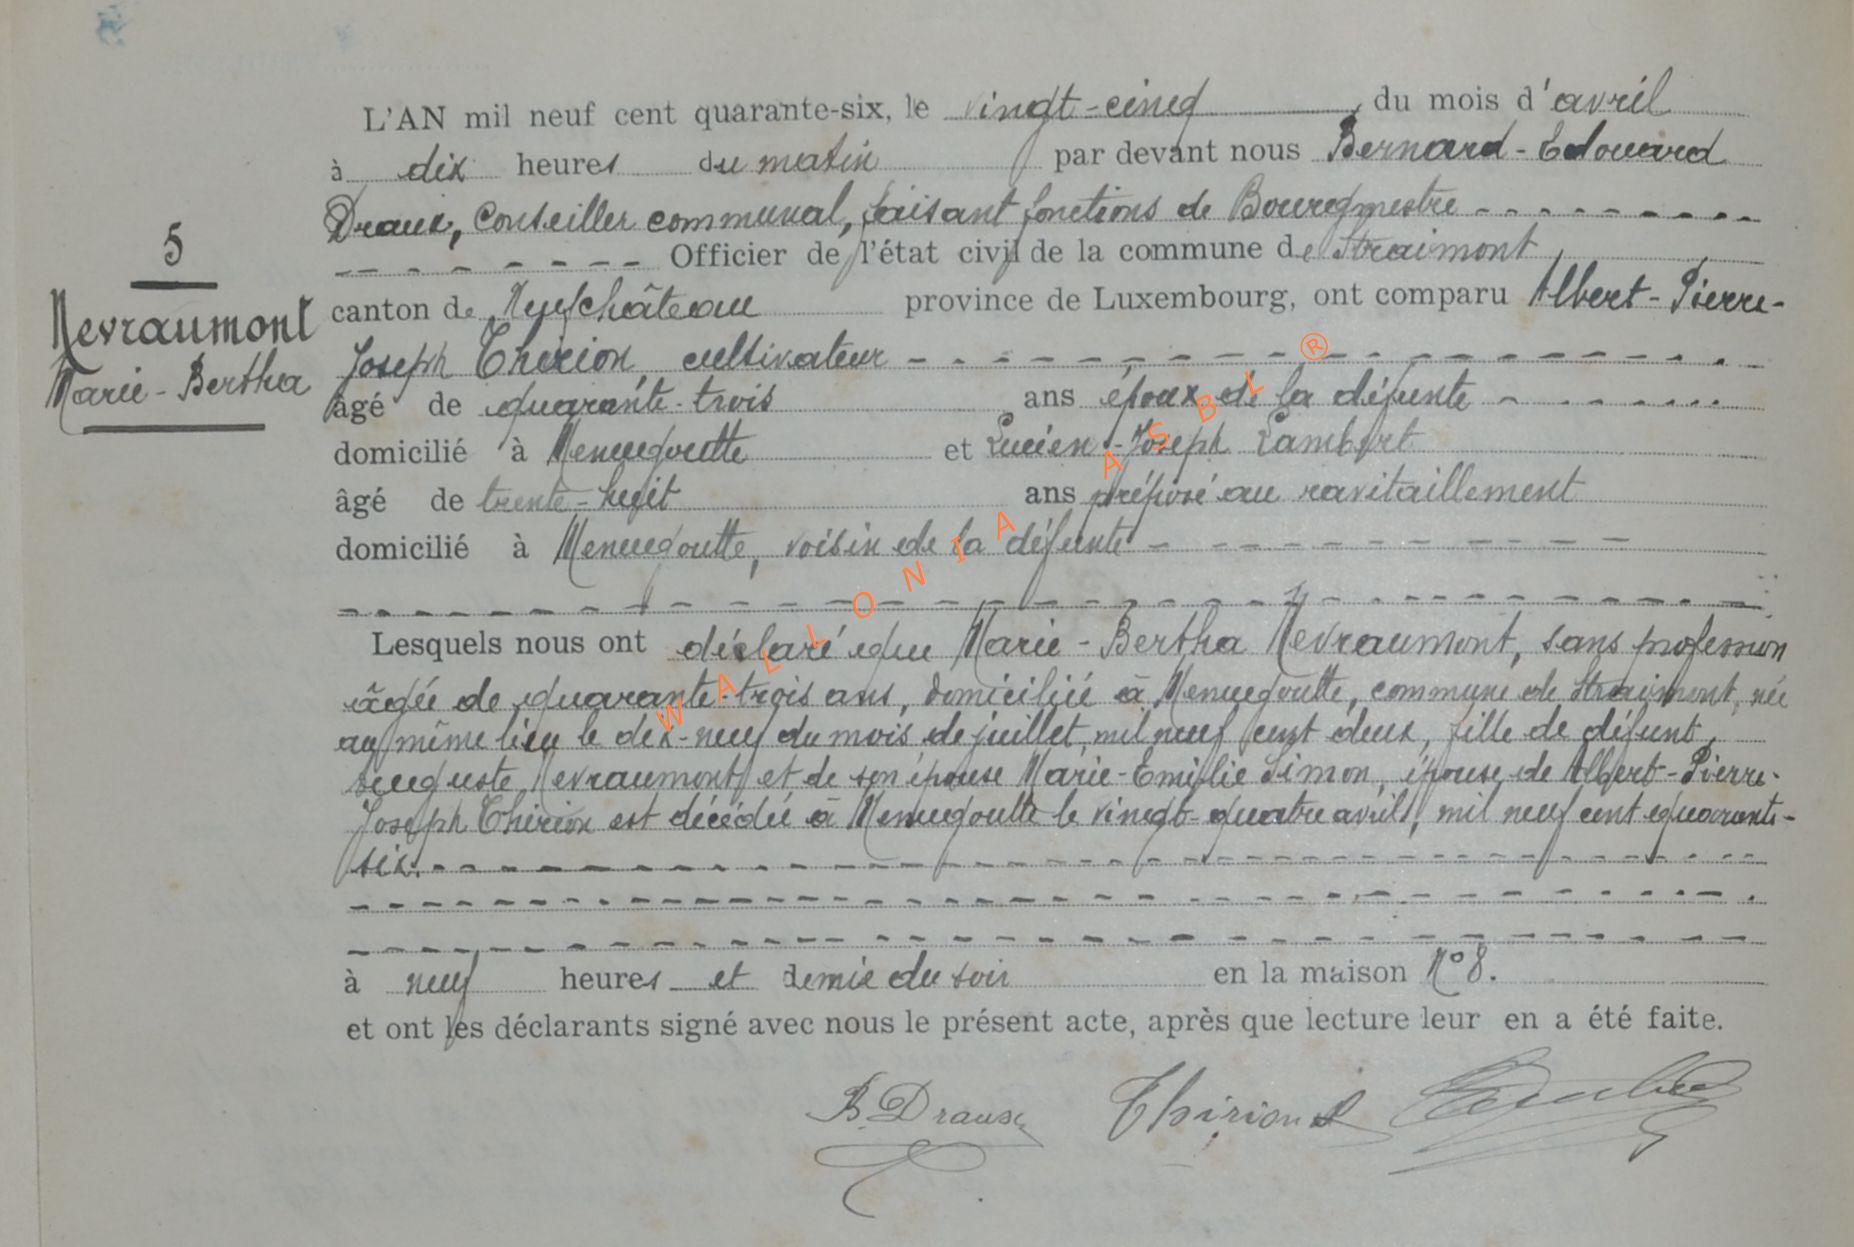 L'AN mil neuf cent quarante-six, le vingt-cinq, du mois d'avril
à dix heures du matin par devant nous Bernard-Edouard
Draux, Conseiller communal, faisant fonctions de Bourgmestre
Officier de l'état civil de la commune de Straimont
5
canton de Neufchâteau province de Luxembourg, ont comparu Albert-Pierre-
Nevraumont
Marie-Bertha
Joseph Thirion cultivateur
âgé de quarante-trois ans époux de la défunte
domicilié à Menugoutte et Lucien-Joseph Lambert
âgé de trente-huit ans préposé au ravitaillement
domicilié à Menugoutte, voisin de la défunte
WALLONIA ASBL ®
Lesquels nous ont déclaré que Marie-Bertha Nevraumont, sans profession
âgée de quarante-trois ans, domiciliée à Menugoutte, commune de Straimont, née
au même lieu le dix-neuf du mois de juillet mil neuf cent deux, fille de défunt
Auguste Nevraumont et de son épouse Marie-Emilie Simon, épouse de Albert-Pierre-
Joseph Thirion est décédée à Menugoutte le vingt-quatre avril, mil neuf cent quarante-
six.
à neuf heures et demie du soir en la maison N° 8.
et ont les déclarants signé avec nous le présent acte, après que lecture leur en a été faite.
B. Draux Thirion